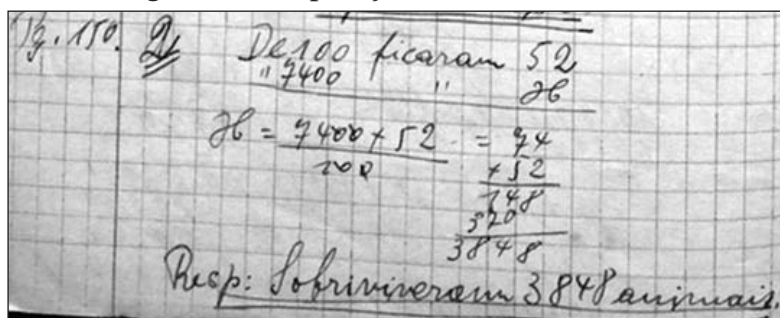 Pg. 150. 2) De 100 ficaram 52
" 7400 " x
x = 7400 × 52 = 74
100 × 52
148
370
3848
Resp: Sobriviveram 3848 animais.